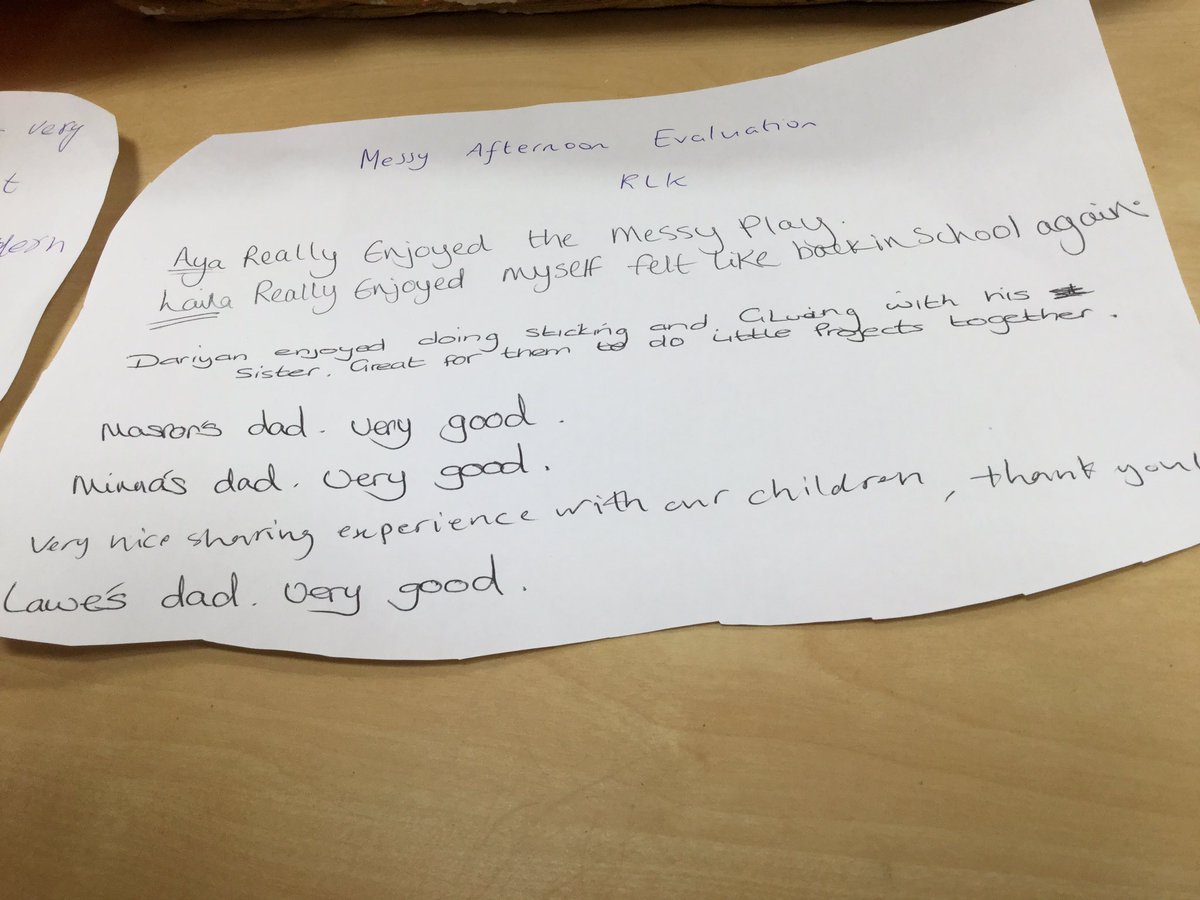 very
t
dern
Messy Afternoon Evaluation
RLK
Aya Really Enjoyed the Messy Play.
Laila Really Enjoyed myself felt like back in School again.
Dariyan enjoyed doing sticking and Gluing with his
Sister. Great for them to do Little Projects together.
dad. very good.
Minna's dad. very good.
Very nice sharing experience with our children, thank you!
Lawe's dad. very good.